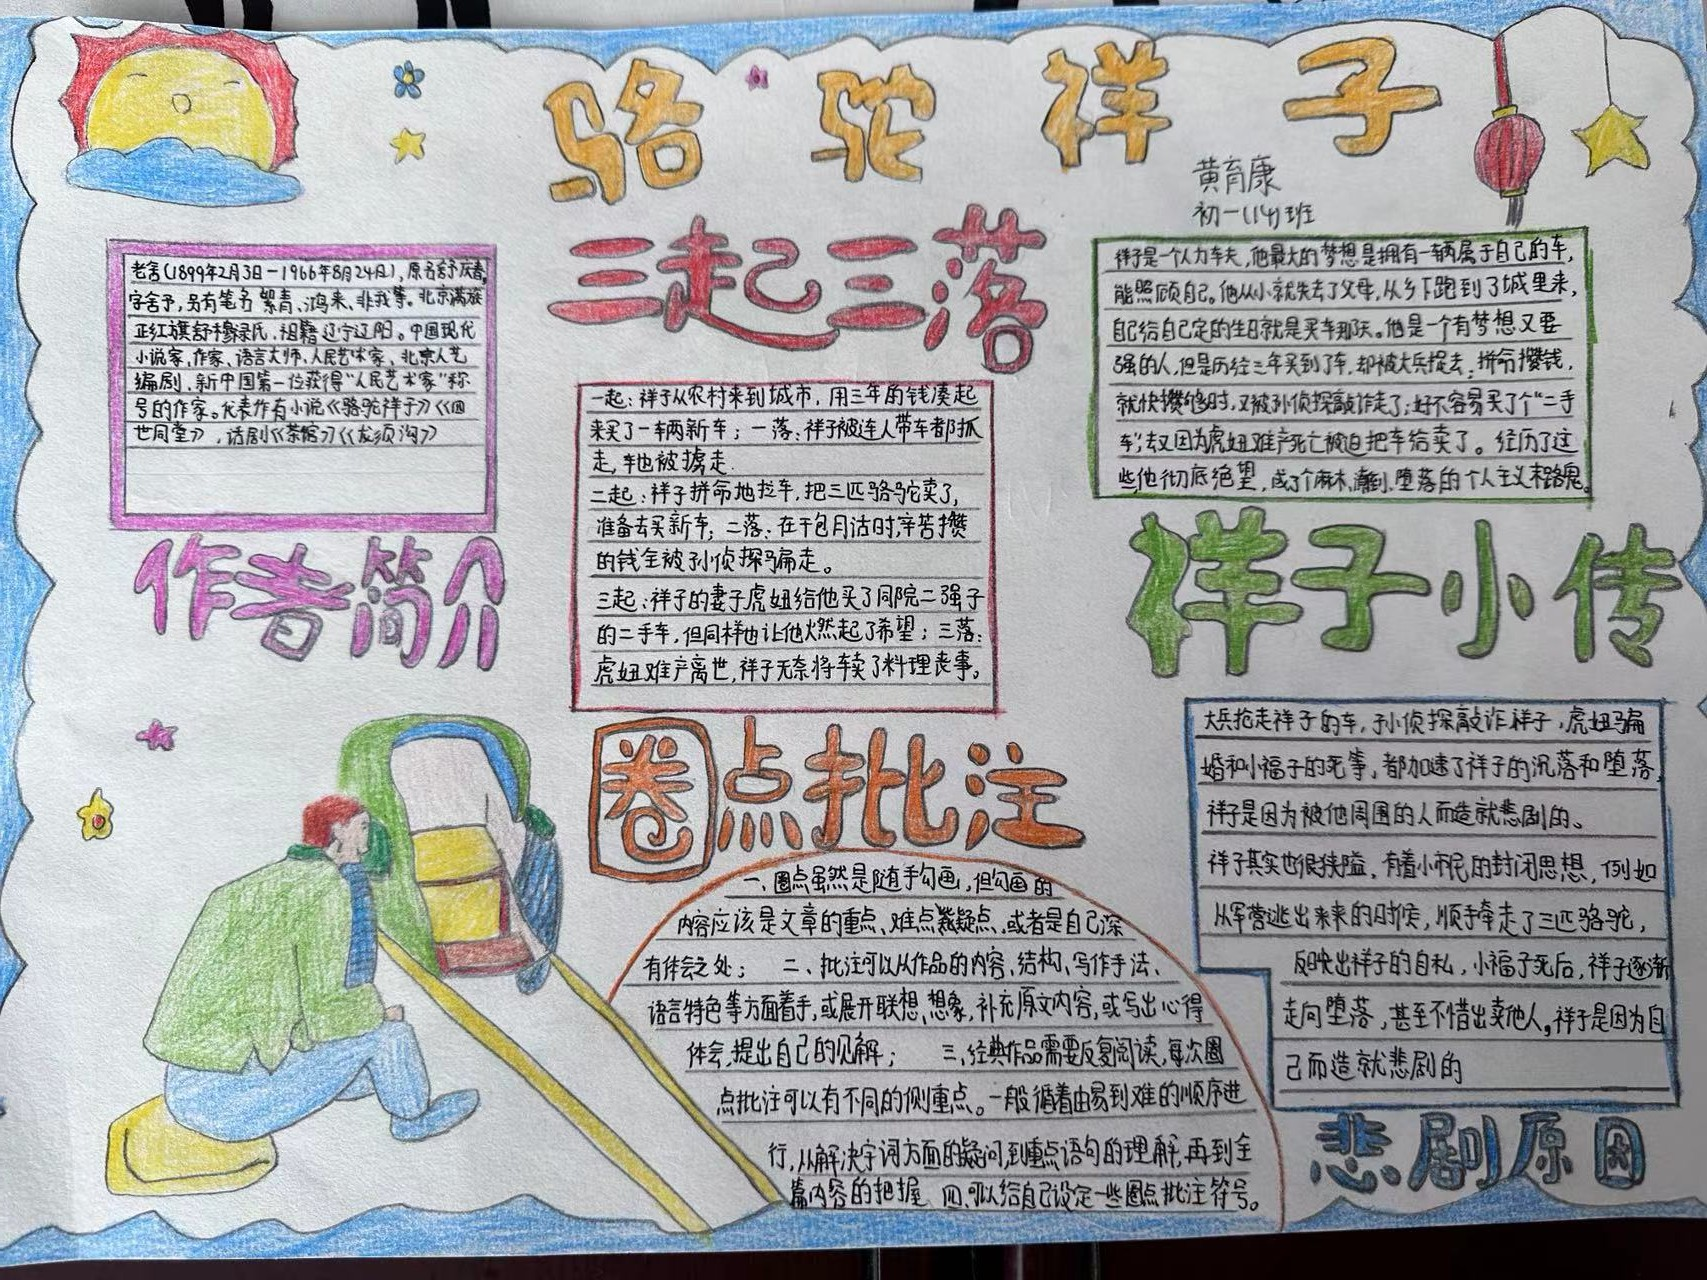 骆驼祥子
黄育康
初一(14)班
老舍(1899年2月3日-1966年8月24日),原名舒庆春,
字舍予,另有笔名絜青、鸿来、非我等。北京满族
正红旗舒穆禄氏,祖籍辽宁辽阳。中国现代
小说家、作家、语言大师、人民艺术家、北京人艺
编剧、新中国第一位获得“人民艺术家”称
号的作家。代表作有小说《骆驼祥子》《四
世同堂》,话剧《茶馆》《龙须沟》
作者简介
三起三落
一起:祥子从农村来到城市,用三年的钱凑起
来买了一车两新车;一落:祥子被连人带车都抓
走,车也被掳走.
二起:祥子拼命地拉车,把三匹骆驼卖了,
准备去买新车;二落:在干包月活时,辛苦攒
的钱全被孙侦探骗走。
三起:祥子的妻子虎妞给他买了同院二强子
的二手车,但同样也让他燃起了希望;三落:
虎妞难产离世,祥子无奈将车卖了料理丧事。
祥子是一个人力车夫,他最大的梦想是拥有一辆属于自己的车,
能照顾自己。他从小就失去了父母,从乡下跑到了城里来,
自己给自己定的生日就是买车那天。他是一个有梦想又要
强的人,但是历经三年买到了车,却被大兵捉去,拼命攒钱,
就快攒够时,又被孙侦探敲诈走了;好不容易买了个“二手
车”,却又因为虎妞难产死亡被迫把车给卖了。经历了这
些,他彻底绝望,成了个麻木,潦倒,堕落的个人主义末路鬼。
祥子小传
圈点批注
一、圈点虽然是随手勾画,但勾画的
内容应该是文章的重点、难点、疑点、或者是自己深
有体会之处; 二、批注可以从作品的内容、结构、写作手法、
语言特色等方面着手,或展开联想、想象,补充原文内容,或写出心得
体会,提出自己的见解; 三、经典作品需要反复阅读,每次圈
点批注可以有不同的侧重点。一般循着由易到难的顺序进
行,从解决字词方面的疑问,到重点语句的理解,再到全
篇内容的把握 四、可以给自己设定一些圈点批注符号。
大兵抢走祥子的车,孙侦探敲诈祥子,虎妞骗
婚和小福子的死等,都加速了祥子的沉落和堕落,
祥子是因为被他周围的人而造就悲剧的。
祥子其实也很狭隘,有着小市民的封闭思想,例如
从军营逃出来来的时候,顺手牵走了三匹骆驼,
反映出祥子的自私,小福子死后,祥子逐渐
走向堕落,甚至不惜出卖他人。祥子是因为自
己而造就悲剧的
悲剧原因